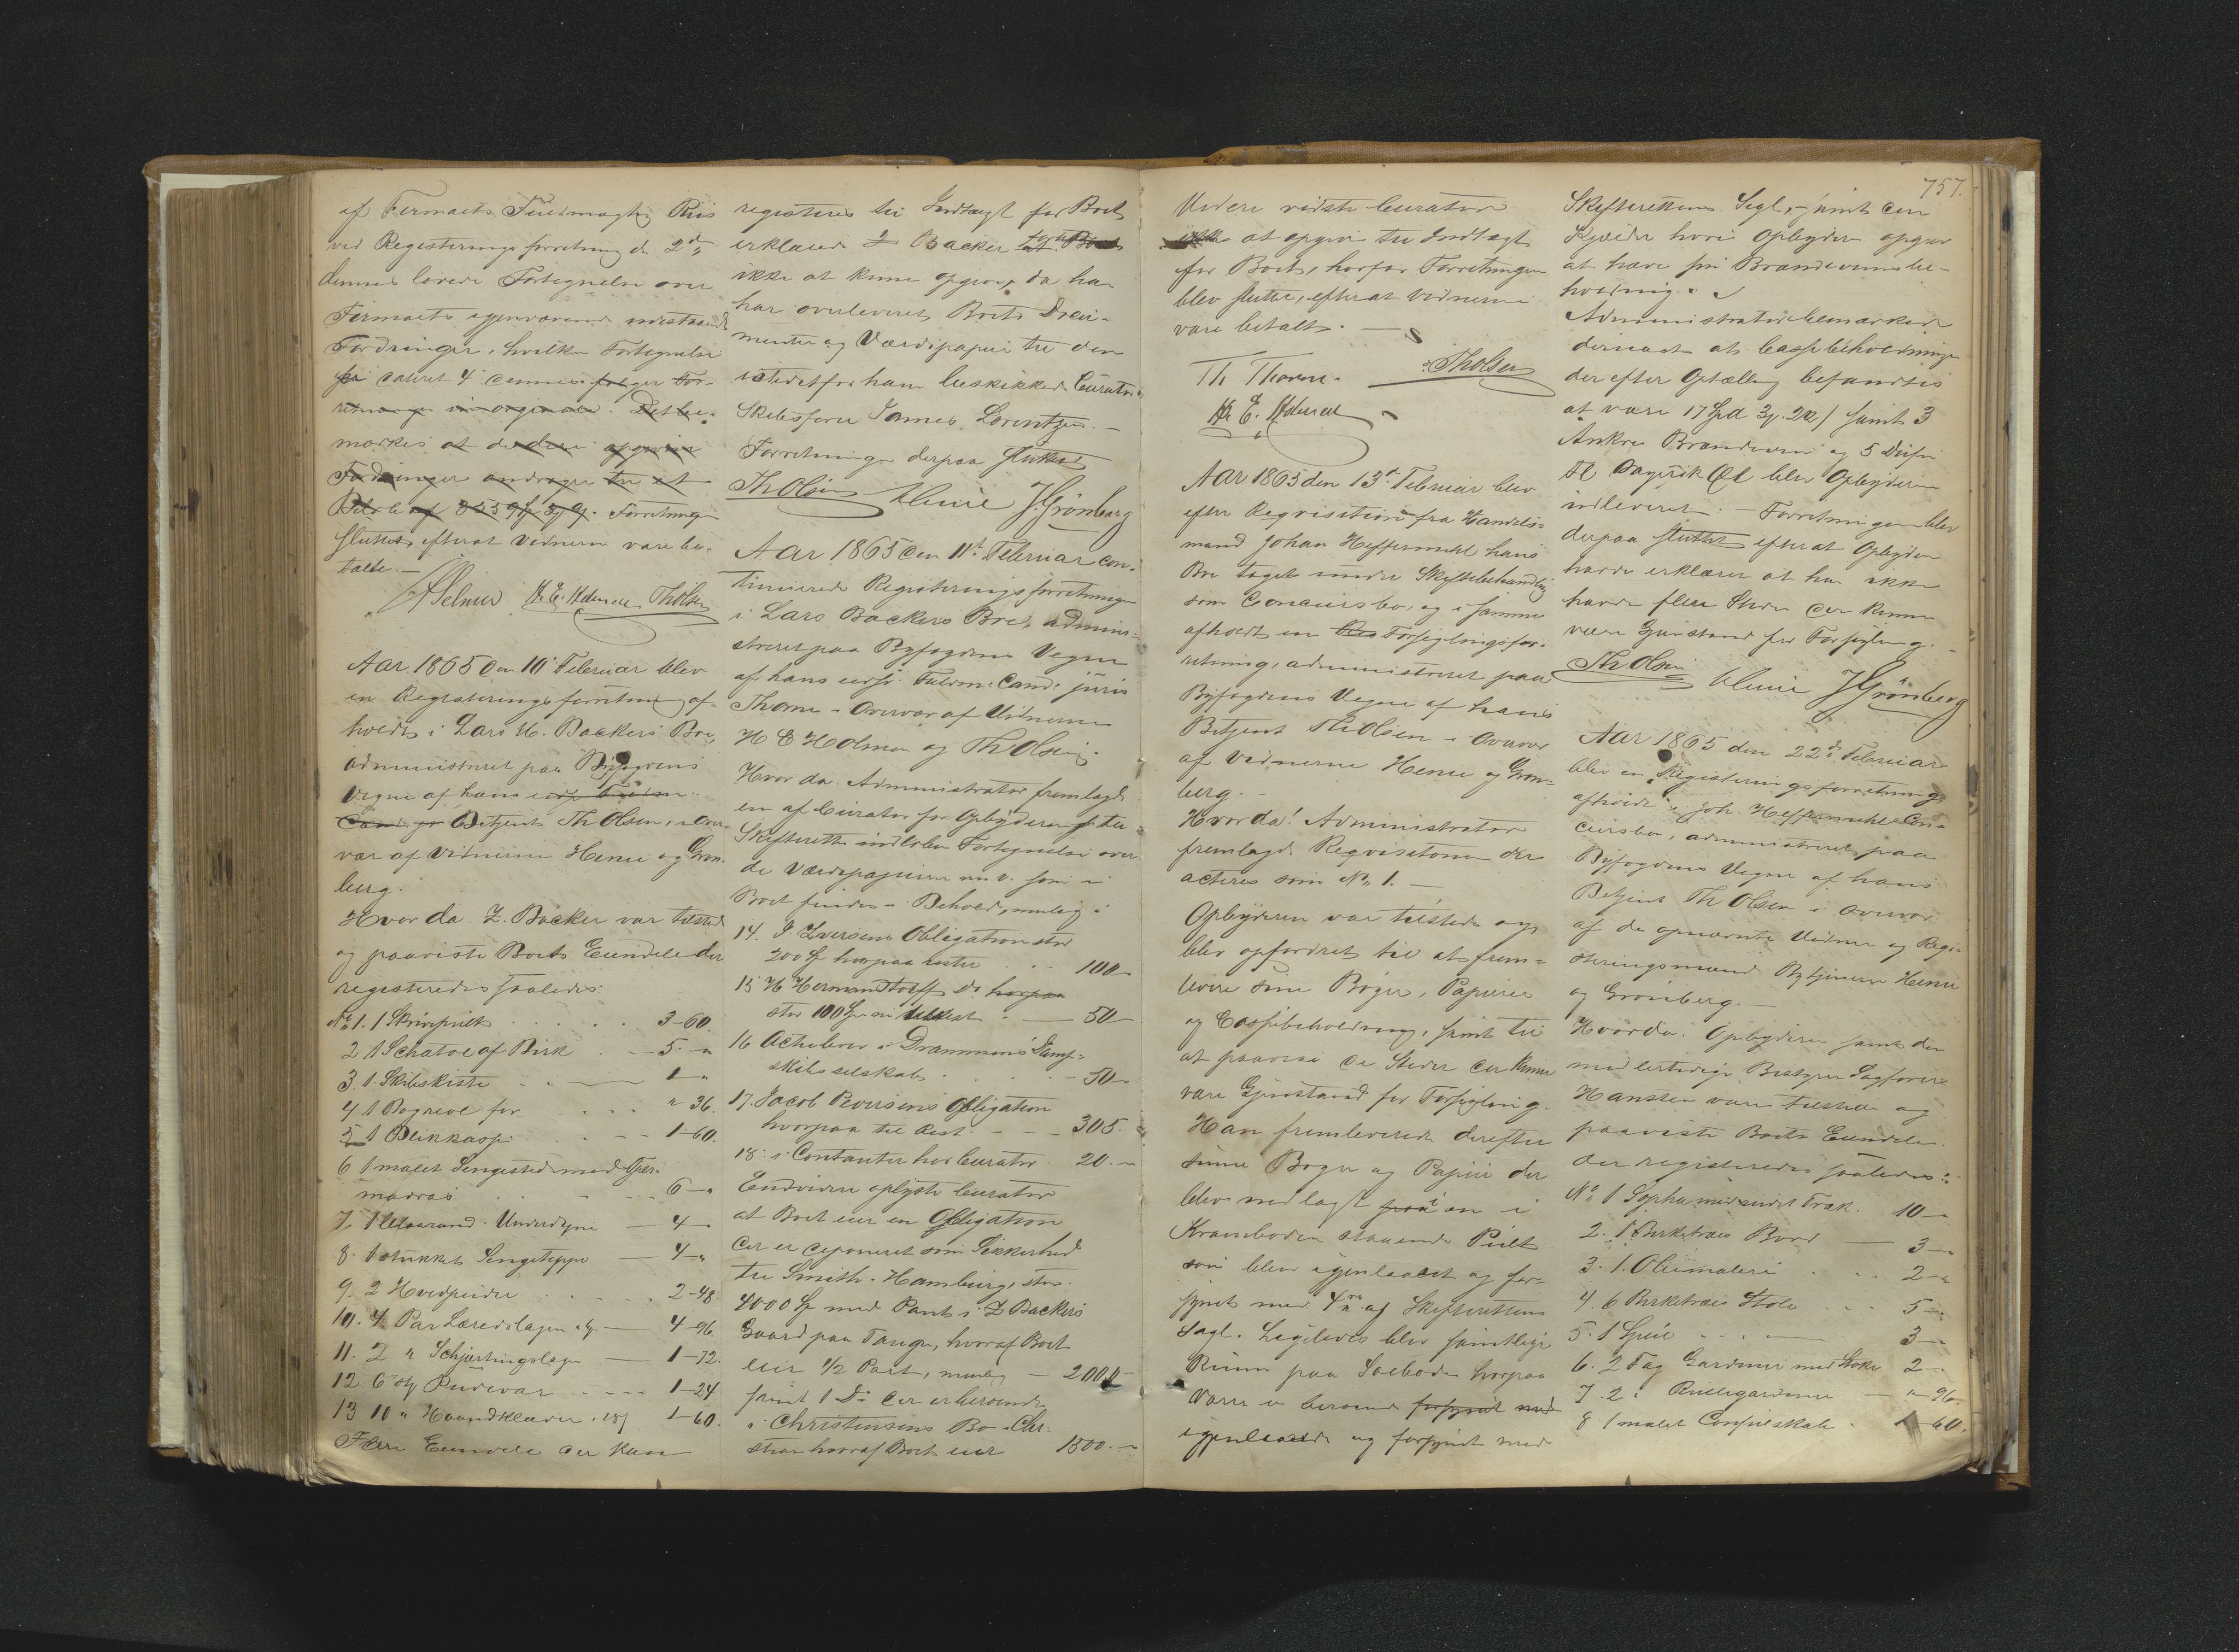 af Firmaets Fuldmægtig Riis
ved Registeringsforretning d. 2den
dennes lovede Fortegnelse over
Firmaets igjenværende udestaaende
Fordringer, hvilken Fortegnelse
er dateret 4 dennes følger For-
retningen in originale. Det be-
mærkes at de deri opgivne
Fordringer andrager til et
Beløb af Forretningen
sluttet, efterat Vidnerne vare be-
talte. —
H. E. Holmen ThOlsen
Aar 1865 den 10' Februar blev
en Registeringsforretning af-
holdt i Lars H. Backers Bo,
administreret paa Byfogdens
Vegne af hans edsv. Fuldm.
Cand. jur Betjent Th Olsen, i Over-
vær af Vidnerne Henie og Grøn-
berg.
Hvorda Z. Backer var tilstede
og paaviste Boets Eiendele der
registeredes saaledes:
No 1. 1 Skrivepult 3-60.
2 1 Schatol af Birk 5 - "
3 1. Skibskiste 1 "
4 1 Bogreol for " 36.
5 1 Blikkasse 1-60.
6 1 malet Sengested med Fjær-
madras 6 - "
7. 1 Underdyne 4 -
8. 1 stukket Sengeteppe 4 "
9. 2 Hovedpuder 2-48
10. 4 Par Læredslagen 4-96.
11. 2 " Schjærtingslagen 1-72.
12 6 st Pudevar 1-24
13 10 " Haandklæder 1-60.
Flere Eiendele der kan
registeres til Indtægt for Boet
erklærede Z Backer
ikke at kunne opgive, da han
har overleveret Boets Docu-
menter og Værdipapirer til den
istedetfor ham beskikkede Curator
Skibsfører James Lorentzen. —
Forretningen derpaa sluttet
ThOlsen Henie J. Grönberg
Aar 1865 den 11t Februar con-
tinuerede Registeringsforretningen
i Lars Backers Bo, admini-
streret paa Byfogdens Vegne
af hans edsv. Fuldm. Cand. juris
Thorne i Overvær af Vidnerne
H E Holmen og ThOlsen.
Hvorda Administrator fremlagde
en af Curator for Opbyderen til
Skifteretten indleveret Fortegnelse over
de Værdipapirer m. v. som i
Boet findes i Behold, nemlig:
14. I. Iversens Obligation stor
200 Sp hvorpaa rester 100 -
15 H Hermanstorffs Do hvorpaa
stor 100 Sp 50 -
16 Actiebrev i Drammens Damp-
skibsselskab 50 -
17. Jacob Iversens Obligation
hvorpaa til Rest 305. -
18. i Contanter hos Curator 20. -
Endvidere oplyste Curator
at Boet eier en Obligation
der er deponeret som Sikkerhed
til Smith i Hamburg, stor
4000 Sp med Pant i Z Backers
Gaard paa Tangen, hvoraf Boet
eier 1/2 Part, nemlig 2000 -
samt 1 Do der er beroende
i Christensens Bo i Chr-
stian hvoraf Boet eier 1500. -
757.
Videre vidste Curator
ikke at opgive til Indtægt
for Boet, hvorfor Forretningen
blev sluttet, efterat Vidnerne
vare betalt. —
Th Thorne. ThOlsen
H. E. Holmen
Aar 1865 den 13de Februar blev
efter Reqvisition fra Handels-
mand Johan Heffermehl hans
Bo taget under Skiftebehandling
som Concursbo, og i samme
afholdt en Forseglingsfor-
retning, administreret paa
Byfogdens Vegne af hans
Betjent Th Olsen i Overvær
af Vidnerne Henie og Grøn-
berg. —
Hvorda! Administrator
fremlagde Reqvisitionen der
acteres som No 1. —
Opbyderen var tilstede og
blev opfordret til at frem-
levere sine Bøger, Papirer
og Cassebeholdning, samt til
at paavise de Steder der kunne
være Gjenstand for Forsegling.
Han fremleverede derefter
sine Bøger og Papirer der
blev nedlagt i en i
Kramboden staaende Pult
som blev igjenlaaset og for-
synet med 4re af Skifterettens
Segl. Ligeledes blev samtlige
Rum paa Søeboden hvorpaa
Varer er beroende forsynet med
igjenlaasede og forsynet med
Skifterettens Segl, samt den
Kjælder hvori Opbyderen opgav
at have sin Brændeviinsbe-
holdning.
Administrator bemærkede
dernæst at Cassebeholdningen
der efter Optælling befandtes
at være 17 Spd samt 3
Ankre Brændeviin og 5
til Øl blev Opbyderen
indleveret. — Forretningen blev
derpaa sluttet efterat Opbyderen
havde erklæret at han ikke
havde flere Steder der kunne
være Gjenstand for Forsegling. —
ThOlsen Henie J Grönberg
Aar 1865 den 22de Februar
blev en Registeringsforretning
afholdt i Joh. Heffermehls Con-
cursbo, administreret paa
Byfogdens Vegne af hans
Betjent Th Olsen i Overvær
af de opnævnte Vidner og Regi-
steringsmænd Bytjenere Henie
og Grønberg. —
Hvorda: Opbyderen samt den
midlertidige Bestyrer Sagfører
Hansteen vare tilstede og
paaviste Boets Eiendele
der registeredes saaledes:
No 1 Sopha med Træk. 10 -
2. 1 Birketræes Bord 3 -
3. 1. Oliemaleri 2 -
4. 6 Birketræes Stole 5 -
5. 1 Speil 3 -
6. 2 Fag Gardiner med Stoke 2 -
7. 2 " Rullegardiner " 96.
8 1 malet 1 60.